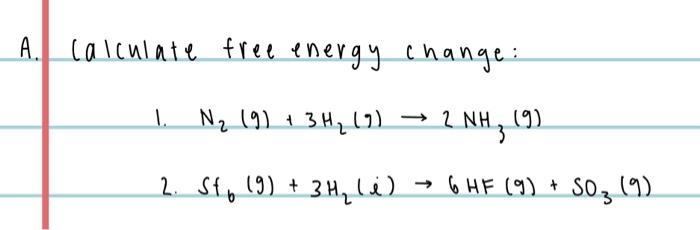 A. Calculate free energy change:
1. N₂ (g) + 3H₂ (g) → 2 NH₃ (g)
2. Sf₆ (g) + 3H₂ (i) → 6 HF (g) + SO₃ (g)